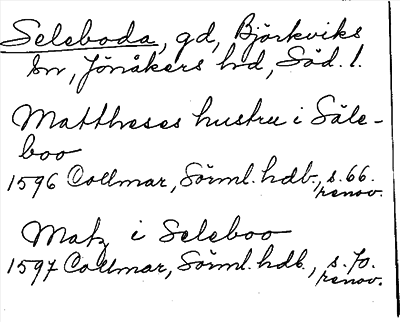 Seleboda, gd, Björkviks
sn, Jönåkers hd, Söd. l.
Mattheses hustru i Säle-
boo
1596 Collmar, Sörml. hdb., s. 66.
renov.
Matz i Seleboo
1597 Collmar, Sörml. hdb., s. 70.
renov.